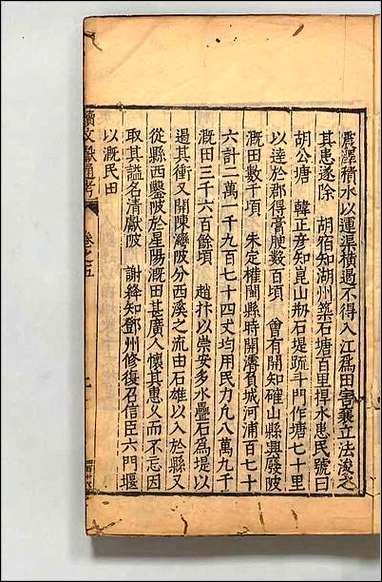 震澤積水以運渠橫遏不得入江爲田害襄立法浚之
其患遂除　胡宿知湖州築石塘百里捍水患民號曰
胡公唐　韓正彥知崑山刱石堤疏斗門作塘七十里
以達於郡得膏腴數百頃　曾有開知確山縣興廢陂
溉田數千頃　朱定權閩縣時開濬負城河浦百七十
六計二萬一千九百七十四丈均用民力凡八萬九千
溉田三千六百餘頃　趙抃以崇安多水疊石爲堤以
遏其衝又開陳灣陂分西溪之流由石雄以入於縣又
從縣西鑿陂於星陽溉田甚廣人懷其惠久而不忘因
取其謚名清獻陂　謝絳知鄧州修復召信臣六門堰
以溉民田
續文獻通考
卷之五